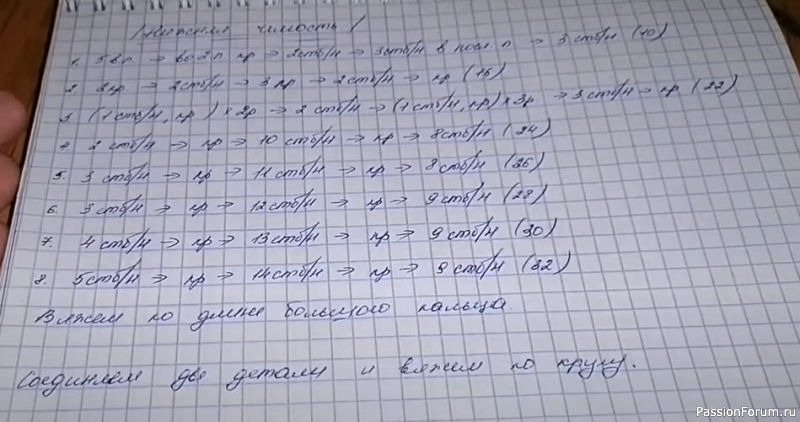 / Нижняя челюсть /
1. 5вп → во 2 п пр → 2стб/н → 3стб/н в посл п → 3 стб/н (10)
2. 2пр → 2стб/н → 3 пр → 2стб/н → пр (16)
3. (1 стб/н, пр) * 2р → 2 стб/н → (1 стб/н, пр) * 3р → 3 стб/н → пр (22)
4. 2 стб/н → пр → 10 стб/н → пр → 8стб/н (24)
5. 3 стб/н → пр → 11 стб/н → пр → 8 стб/н (26)
6. 3 стб/н → пр → 12 стб/н → пр → 9 стб/н (28)
7. 4 стб/н → пр → 13стб/н → пр → 9 стб/н (30)
8. 5стб/н → пр → 14стб/н → пр → 9 стб/н (32)
Вяжем по длине большого пальца.
Соединяем две детали и вяжем по кругу.
PassionForum.ru